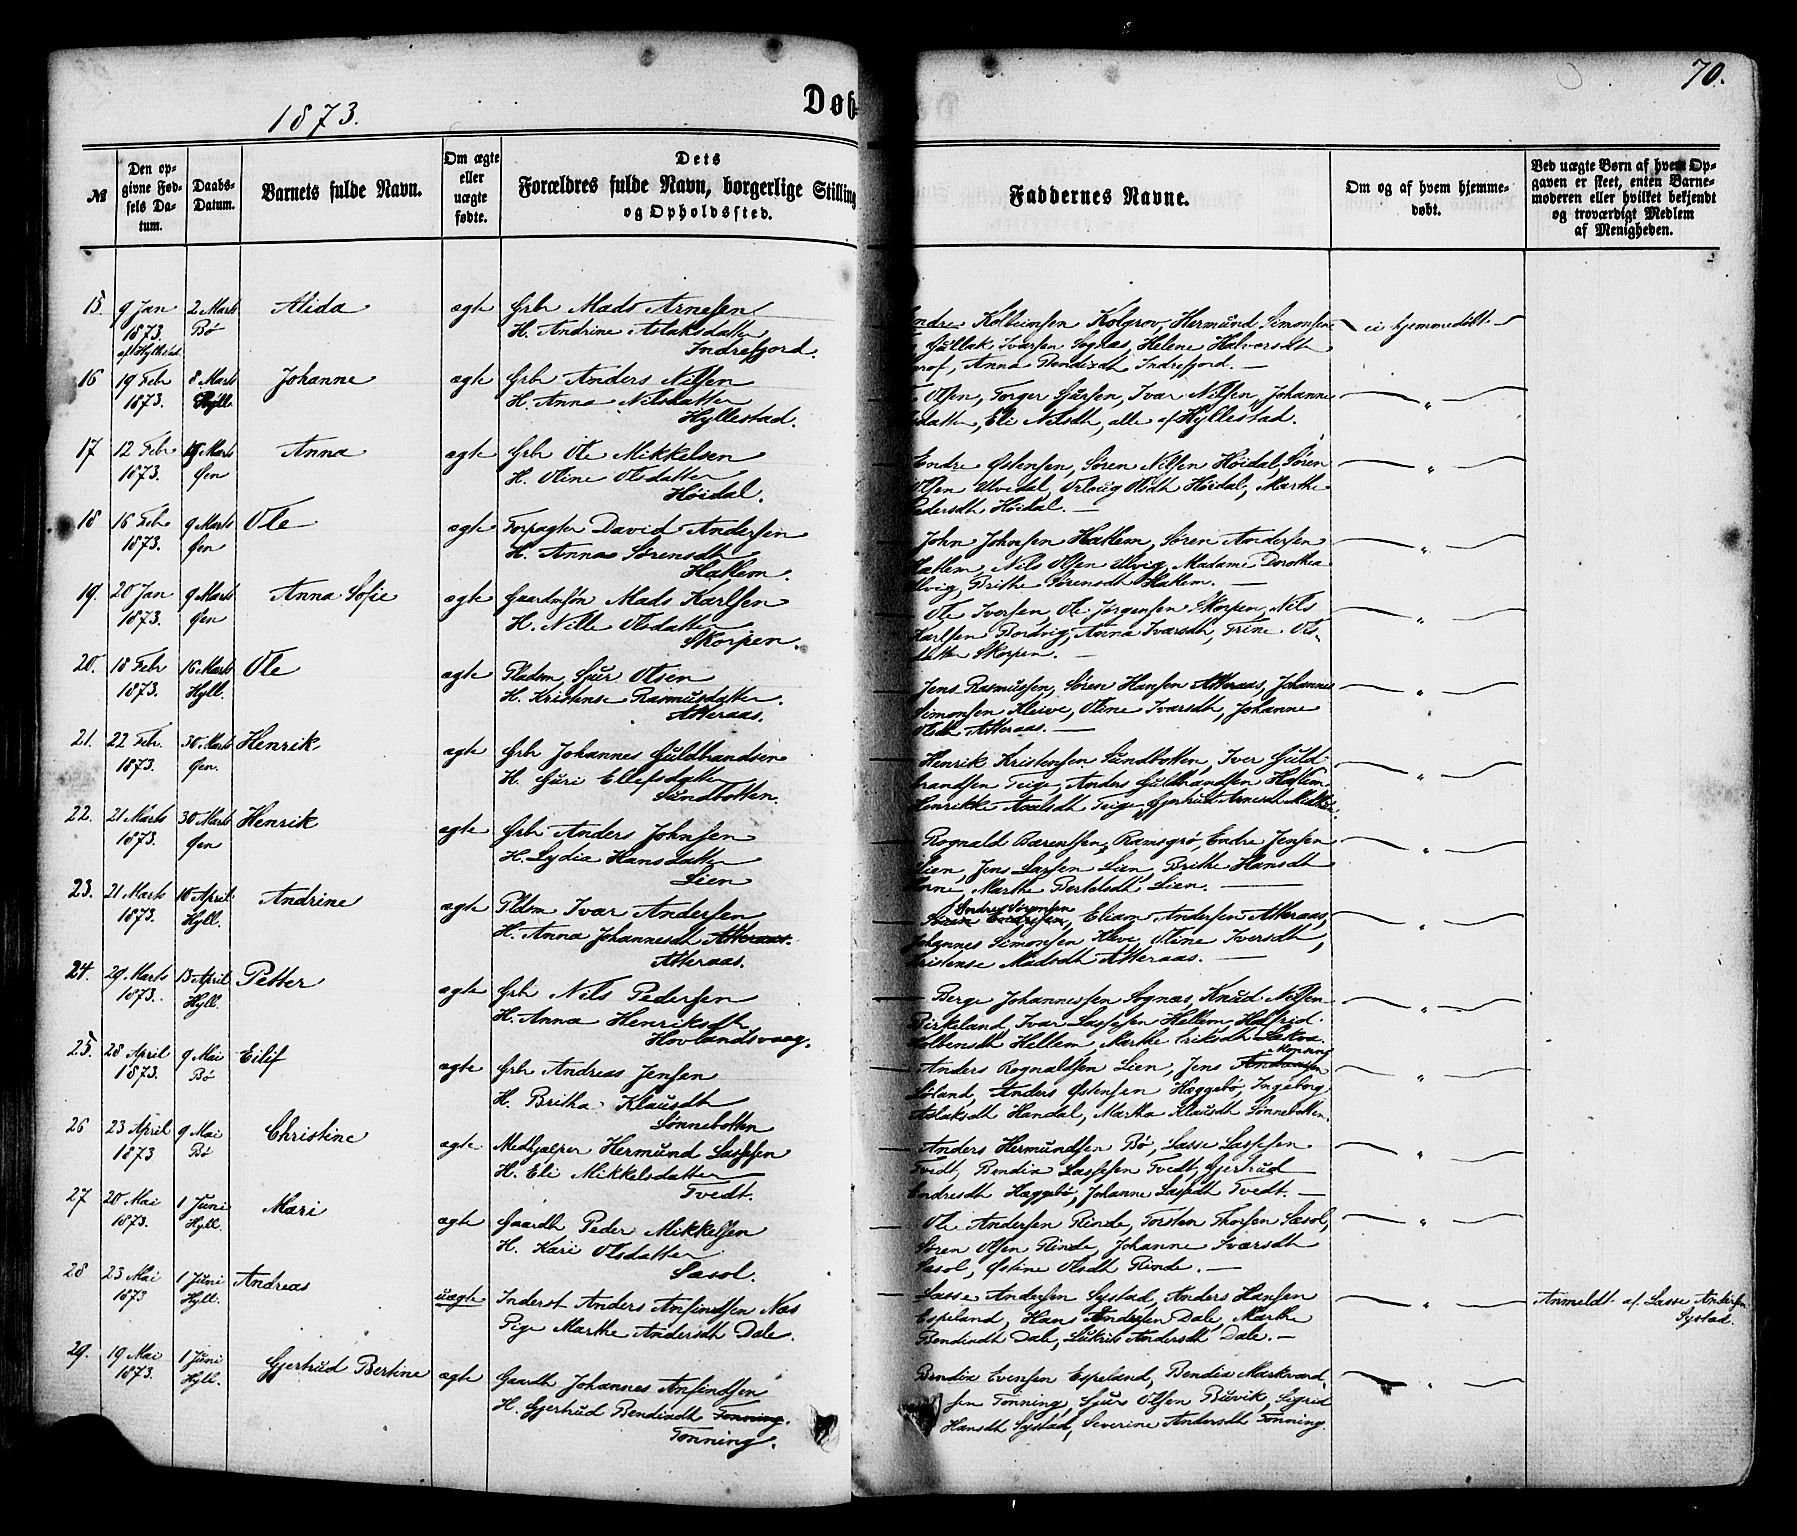 70.
1873.
Døb-
№
Den opgivne Fødsels Datum.
Daabs-Datum.
Barnets fulde Navn.
Om ægte eller uægte fødte.
Dets
Forældres fulde Navn, borgerlige Stilling
og Opholdssted.
Faddernes Navne.
Om og af hvem hjemmedøbt.
Ved uægte Børn af hvem Opgaven er skeet, enten Barnemoderen eller hvilket bekjendt og troværdigt Medlem af Menigheden.
15. 9 Jan 1873. 2 Marts Bø Alida ægte Grbr Mads Arnesen
H. Andrine Aslaksdatter
Indrefjord.
Endre Kolbeinsen Kolgrov, Hermund Simonsen
Gullak Ivarsen Sognæs, Helene Halvorsdt
Anna Bendixdt Indrefjord.
ei hjemmedøbt
16 19 Febr 1873. 8 Marts Hyll Johanne ægte Grbr Anders Nilsen
H. Anna Nilsdatter
Hyllestad.
Olsen, Torger Sjursen, Ivar Nilsen, Johanne
datter, Eli Nilsdt, alle af Hyllestad.
"
17 12 Febr 1873. 9 Marts Øen Anna ægte Grbr Ole Mikkelsen
H. Oline Olsdatter
Høidal.
Endre Østensen, Søren Nilsen Høidal, Søren
Olsen Ulvedal, Olsdt Høidal, Marthe
Pedersdt Høidal.
"
18 16 Febr 1873. 9 Marts Øen Ole ægte Forpagter David Andersen
H. Anna Sørensdt
Hatlem.
John Johnsen Hatlem, Søren Andersen
Hatlem, Nils Olsen Ulvig, Madame Dorothea
Ulvig, Brithe Sørensdt Hatlem.
"
19. 20 Jan 1873. 9 Marts Øen Anna Sofie ægte Gaardmsøn Mads Karlsen
H. Nille Olsdatter
Skorpen.
Ole Iversen, Ole Jørgensen Skorpen, Nils
Karlsen Bordvig, Anna Ivarsdt, Trine Olsdatter Skorpen.
"
20. 18 Febr 1873. 16 Marts Hyll. Ole ægte Pladsm Sjur Olsen
H. Kristense Rasmusdatter.
Atteraas.
Jens Rasmussen, Søren Hansen Atteraas, Johannes
Simonsen Kleive, Oline Ivarsdt, Johanne
Olsdt Atteraas.
"
21. 22 Febr. 1873. 30 Marts Øen. Henrik ægte Grbr Johannes Guldbrandsen
H. Guri Ellefsdatter
Sundbotten.
Henrik Kristensen Sundbotten, Iver Guldbrandsen Teige, Anders Guldbrandsen Hatlem
Henrikke Axelsdt Teige, Gjertrud Arnesdt
"
22. 21 Marts 1873. 30 Marts Øen Henrik ægte Grbr Anders Johnsen
H. Lydia Hansdatter
Lien
Rognald Barentsen, Ramsgrø, Endre Jensen
Lien, Jens Lassen Lien, Brithe Hansdt
Marthe Bertelsdt Lien.
"
23. 21 Marts 1873. 10 April Hyll. Andrine ægte Pldsm Ivar Andersen
H. Anna Johannesdt Atteraas.
Atteraas.
Endre Sørensen
Søren Endresen, Eliam Andersen Atteraas,
Johannes Simonsen Kleve, Oline Iversdt,
Kristense Madsdt Atteraas.
"
24. 29 Marts 1873. 13 April Hyll. Petter ægte Grbr Nils Pedersen
H. Anna Henriksdt
Hovlandsvaag.
Berge Johannessen Sognæs, Knud Nilsen
Birkeland, Ivar Lassesen Hellem, Halfrid
Kolbensdt Hellem, Marthe Eriksdt
"
25. 28 April 1873. 9 Mai Bø Eilif ægte Grbr Andreas Jensen
H. Britha Klausdt
Sønnebotten
Anders Rognaldsen Lien, Jens
Søland, Anders Østensen Hæggebø, Ingeborg
Aslaksdt Handal, Martha Klausdt Sønnebotten.
"
26 23 April 1873 9 Mai Bø Christine ægte Medhjælper Hermund Lassesen
H. Eli Mikkelsdatter
Tvedt.
Anders Hermundsen Bø, Lasse Lassesen
Tvedt, Bendix Lassesen Tvedt, Gjertrud
Endresdt Hæggebø, Johanne Lassedt Tvedt.
"
27 20 Mai 1873. 1 Juni Hyll. Mari ægte Gaardb Peder Mikkelsen
H. Kari Olsdatter
Sæsol.
Ole Andersen Rinde, Torsten Thorsen Sæsol,
Søren Olsen Rinde, Johanne Ivarsdt
Sæsol, Østine Olsdt Rinde.
"
28 23 Mai 1873 1 Juni Hyll. Andreas uægte Inderst Anders Ansindsen Næs
Pige Marthe Andersdt Dale.
Lasse Andersen Systad, Anders Hansen
Espeland, Hans Andersen Dale, Marthe
Bendixdt Dale, Lukris Andersdt Dale.
"
Anmeldt af Lasse Andersen
Systad.
29. 19 Mai 1873. 1 Juni Hyll. Gjertrud Bertine ægte Gaardb Johannes Ansindsen
H. Gjertrud Bendixdt Tonning.
Tonning.
Bendix Evensen Espeland, Bendix Markvardsen Tonning, Sjur Olsen Buvik, Sigrid
Hansdt Systad, Severine Andersdt Tonning.
"